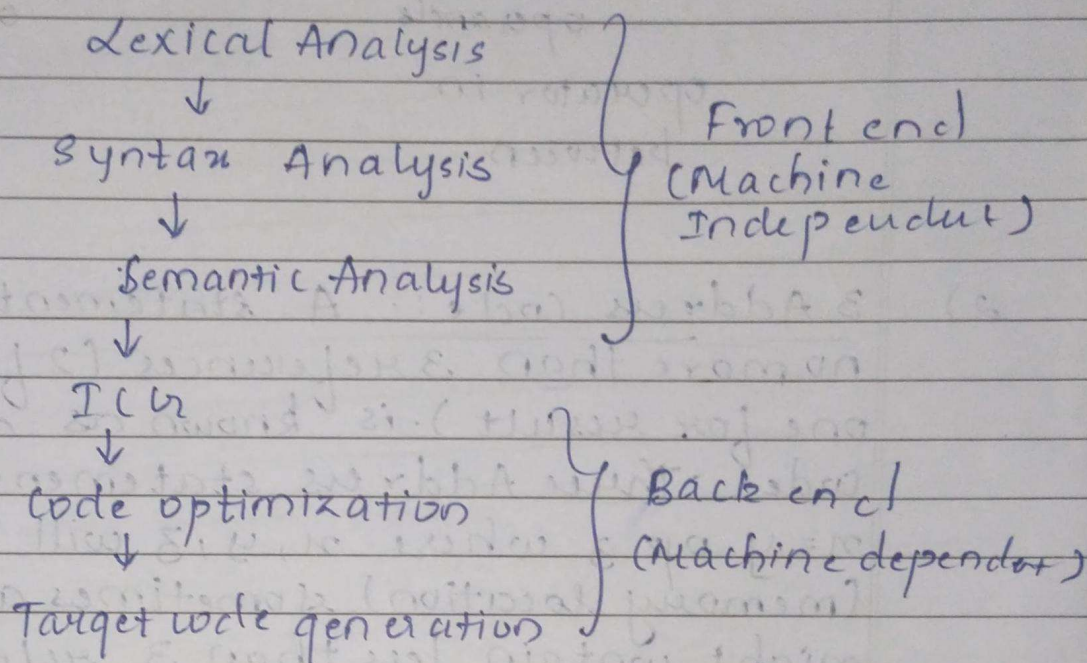 Lexical Analysis
↓
Syntax Analysis
↓
Semantic Analysis
↓
ICG
↓
Code optimization
↓
Target code generation
Front end
(Machine
Independent)
Back end
(Machine dependent)